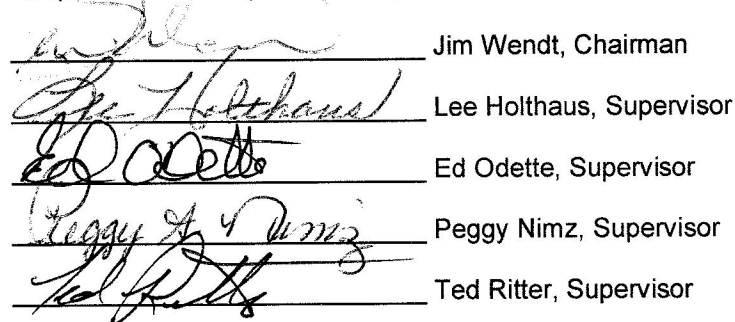 Jim Wendt, Chairman
Lee Holthaus Lee Holthaus, Supervisor
Ed Odette Ed Odette, Supervisor
Peggy A. Nimz Peggy Nimz, Supervisor
Ted Ritter Ted Ritter, Supervisor